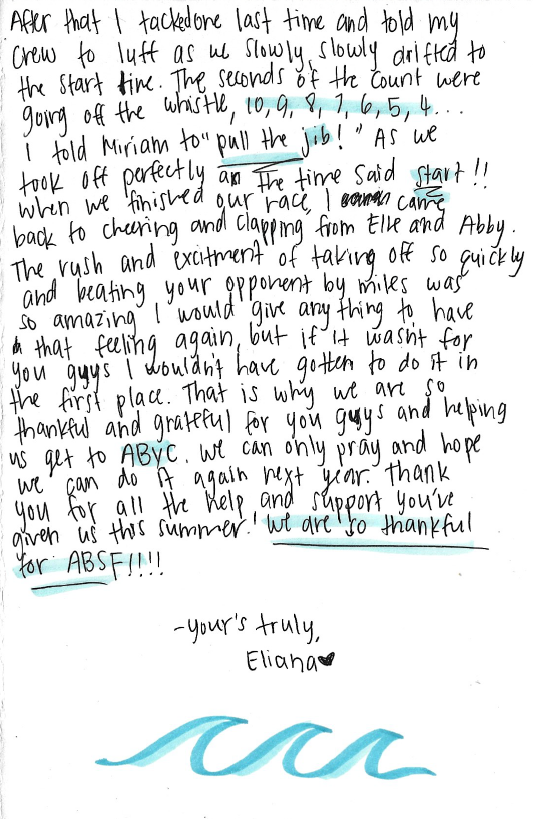 After that I tacked one last time and told my
crew to luff as we slowly, slowly drifted to
the start line. The seconds of the count were
going off the whistle, 10, 9, 8, 7, 6, 5, 4...
I told Miriam to "pull the jib!" As we
took off perfectly an the time said start!!
when we finished our race, I came
back to cheering and clapping from Elle and Abby.
The rush and excitment of taking off so quickly
and beating your opponent by miles was
so amazing I would give anything to have
that feeling again, but if it wasn't for
you guys I wouldn't have gotten to do it in
the first place. That is why we are so
thankful and grateful for you guys and helping
us get to ABYC. We can only pray and hope
we can do it again next year. Thank
you for all the help and support you've
given us this summer! We are so thankful
for ABSF!!!!
-your's truly,
Eliana